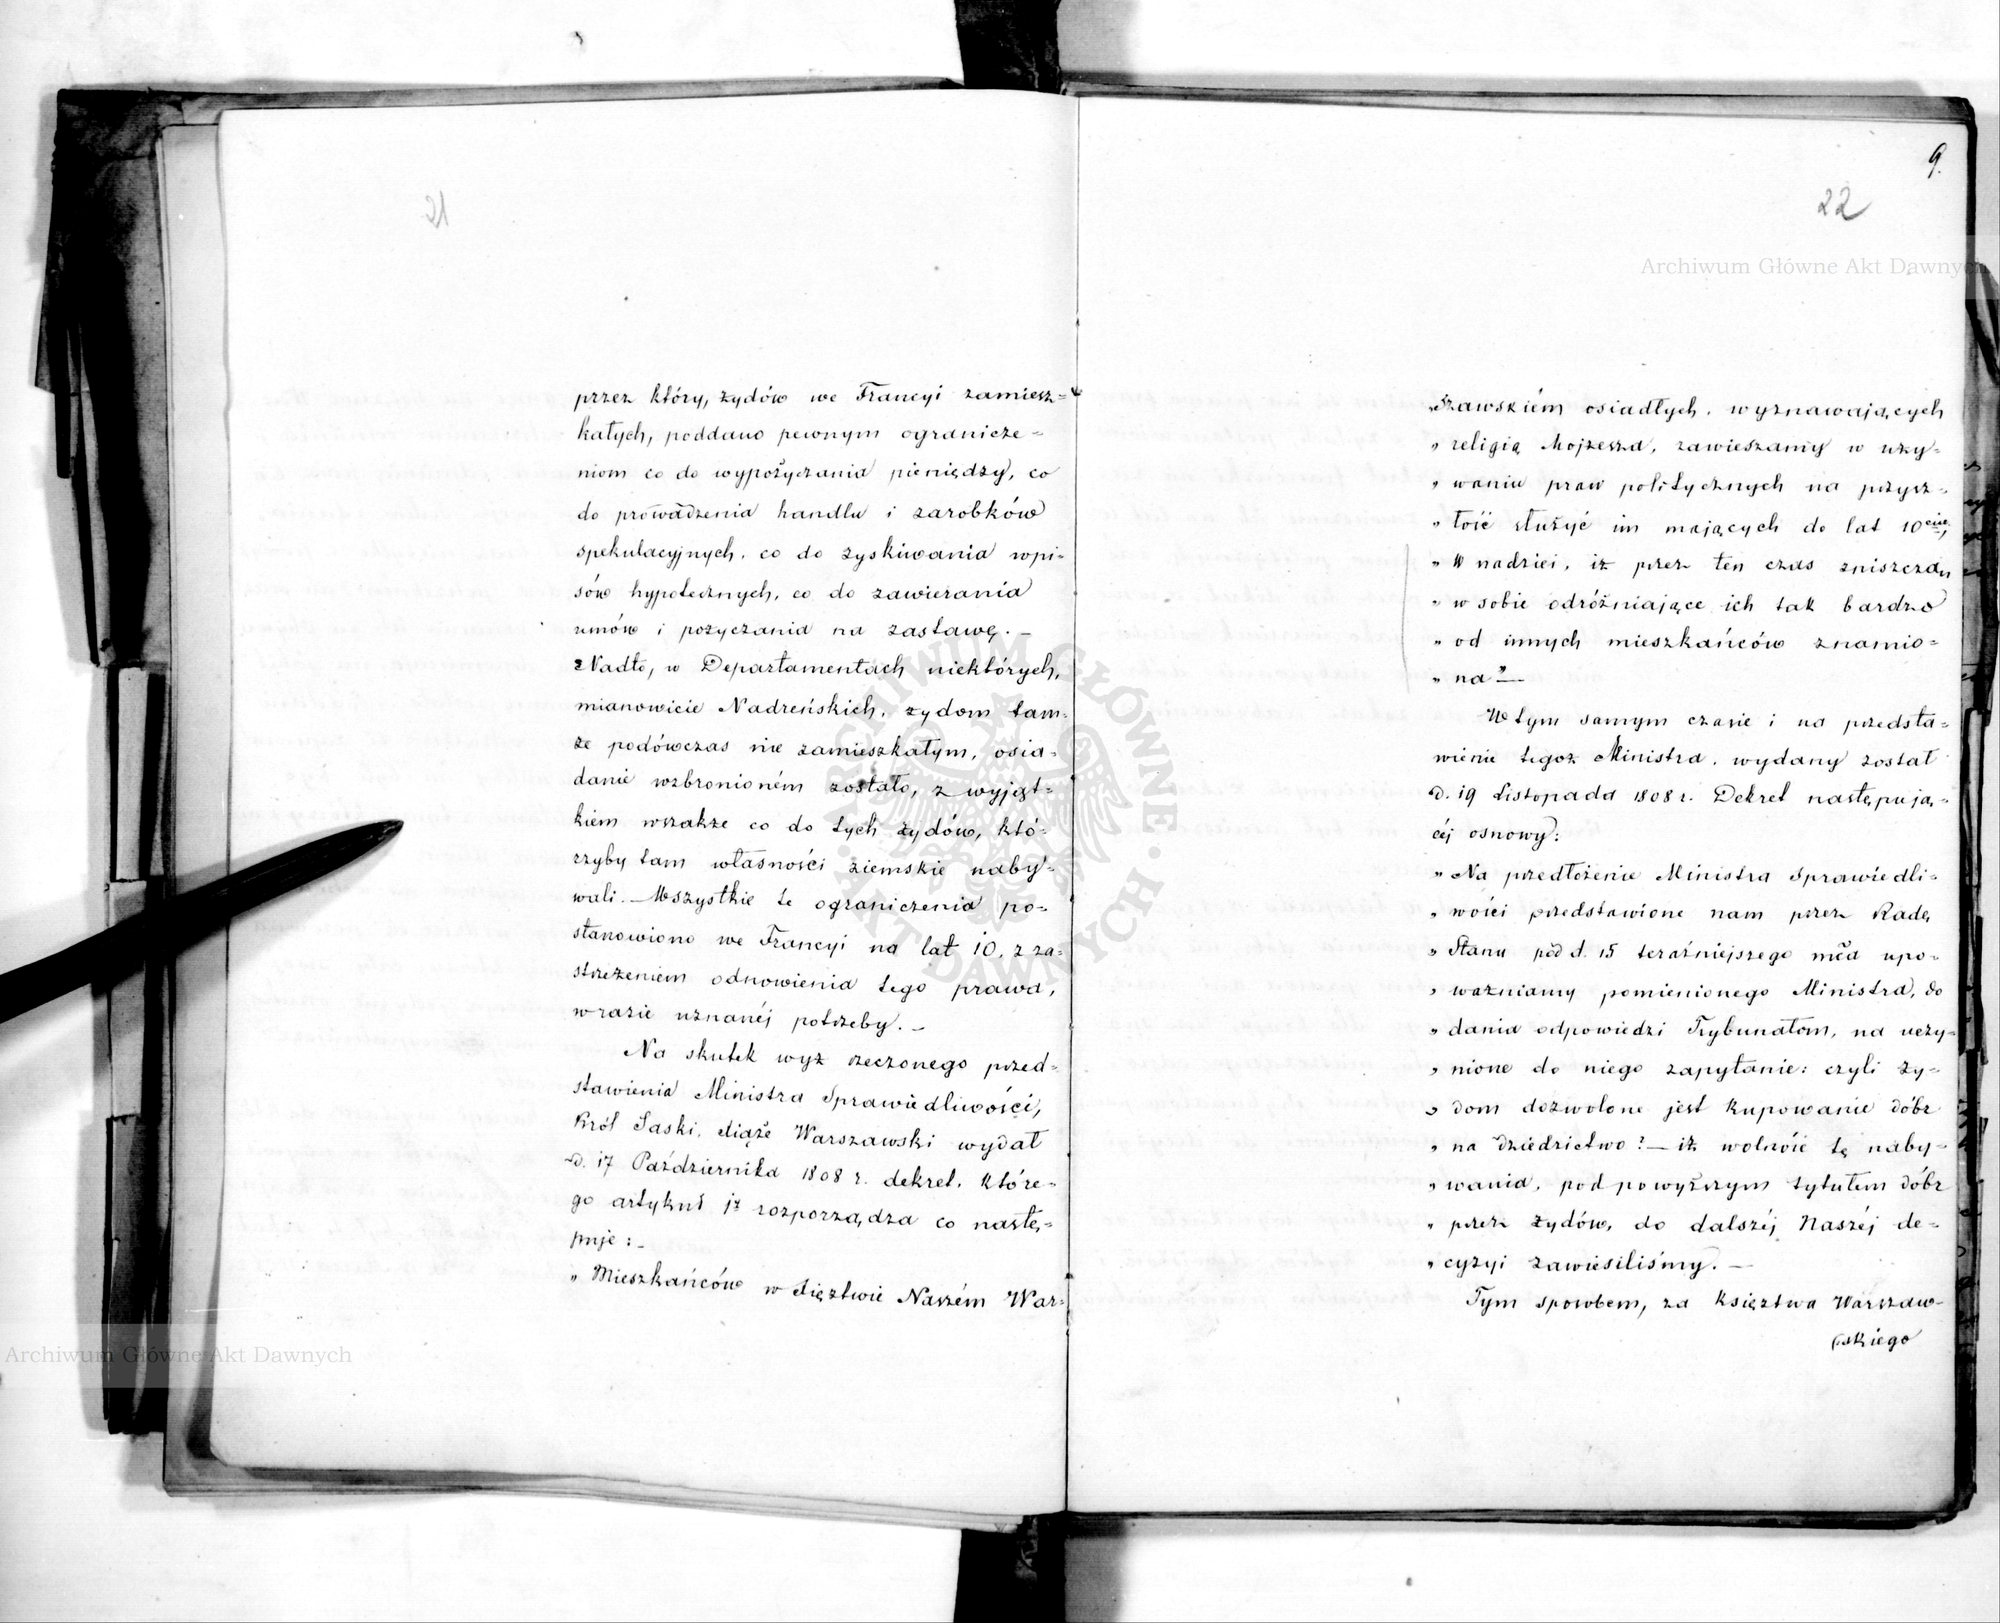 21
przez który, żydów we Francyi zamiesz=
kałych, poddano pewnym ogranicze=
niom co do wypożyczania pieniędzy, co
do prowadzenia handlu i zarobków
spekulacyjnych, co do zyskiwania wpi=
sów hypotecznych, co do zawierania
umów i pożyczania na zastawę. –
Nadto, w Departamentach niektórych,
mianowicie Nadreńskich, żydom tam=
że podówczas nie zamieszkałym, osia=
danie wzbronioném zostało, z wyjąt=
kiem wszakże co do tych żydów, któ=
rzyby tam własności ziemskie naby=
wali. – Wszystkie te ograniczenia po=
stanowiono we Francyi na lat 10, z za=
strzeżeniem odnowienia tego prawa,
w razie uznanéj potrzeby. –
Na skutek wyż rzeczonego przed=
stawienia Ministra Sprawiedliwości,
Król Saski, Xiąże Warszawski wydał
d. 17 Października 1808 r. dekret, które=
go artykuł 1y rozporządza co nastę=
puje: –
„ Mieszkańców w Xięztwie Naszém War=
9.
22
„szawskiém osiadłych, wyznawających
„ religią Mojżesza, zawieszamy w uży=
„ waniu praw politycznych na przysz=
„ łość służyć im mających do lat 10ciu,
„ W nadziei, iż przez ten czas zniszczą
„ w sobie odróżniające ich tak bardzo
„ od innych mieszkańców znamio=
„ na" –
W tym samym czasie i na przedsta=
wienie tegoż Ministra, wydany został
d. 19 Listopada 1808 r. Dekret następują=
céj osnowy:
„ Na przedłożenie Ministra Sprawiedli=
„ wości przedstawione nam przez Radę
„ Stanu pod d. 15 teraźniejszego mca upo=
„ ważniamy pomienionego Ministra, do
„ dania odpowiedzi Trybunałom, na uczy=
„ nione do niego zapytanie: czyli ży=
„ dom dozwolone jest kupowanie dóbr
„ na dziedzictwo? – iż wolność tę naby=
„ wania, pod powyższym tytułem dóbr
„ przez żydów, do dalszéj Naszéj de=
„ cyzyi zawiesiliśmy. –
Tym sposobem, za Księztwa Warszaw=
(skiego
Archiwum Główne Akt Dawnych
Archiwum Główne Akt Dawnych
ARCHIWUM GŁÓWNE AKT DAWNYCH